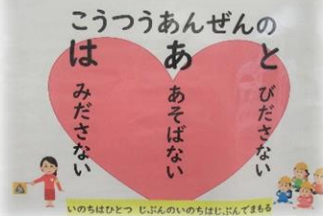 こうつうあんぜんの
はみださない
ああそばない
とびださない
いのちはひとつ じぶんのいのちはじぶんでまもる